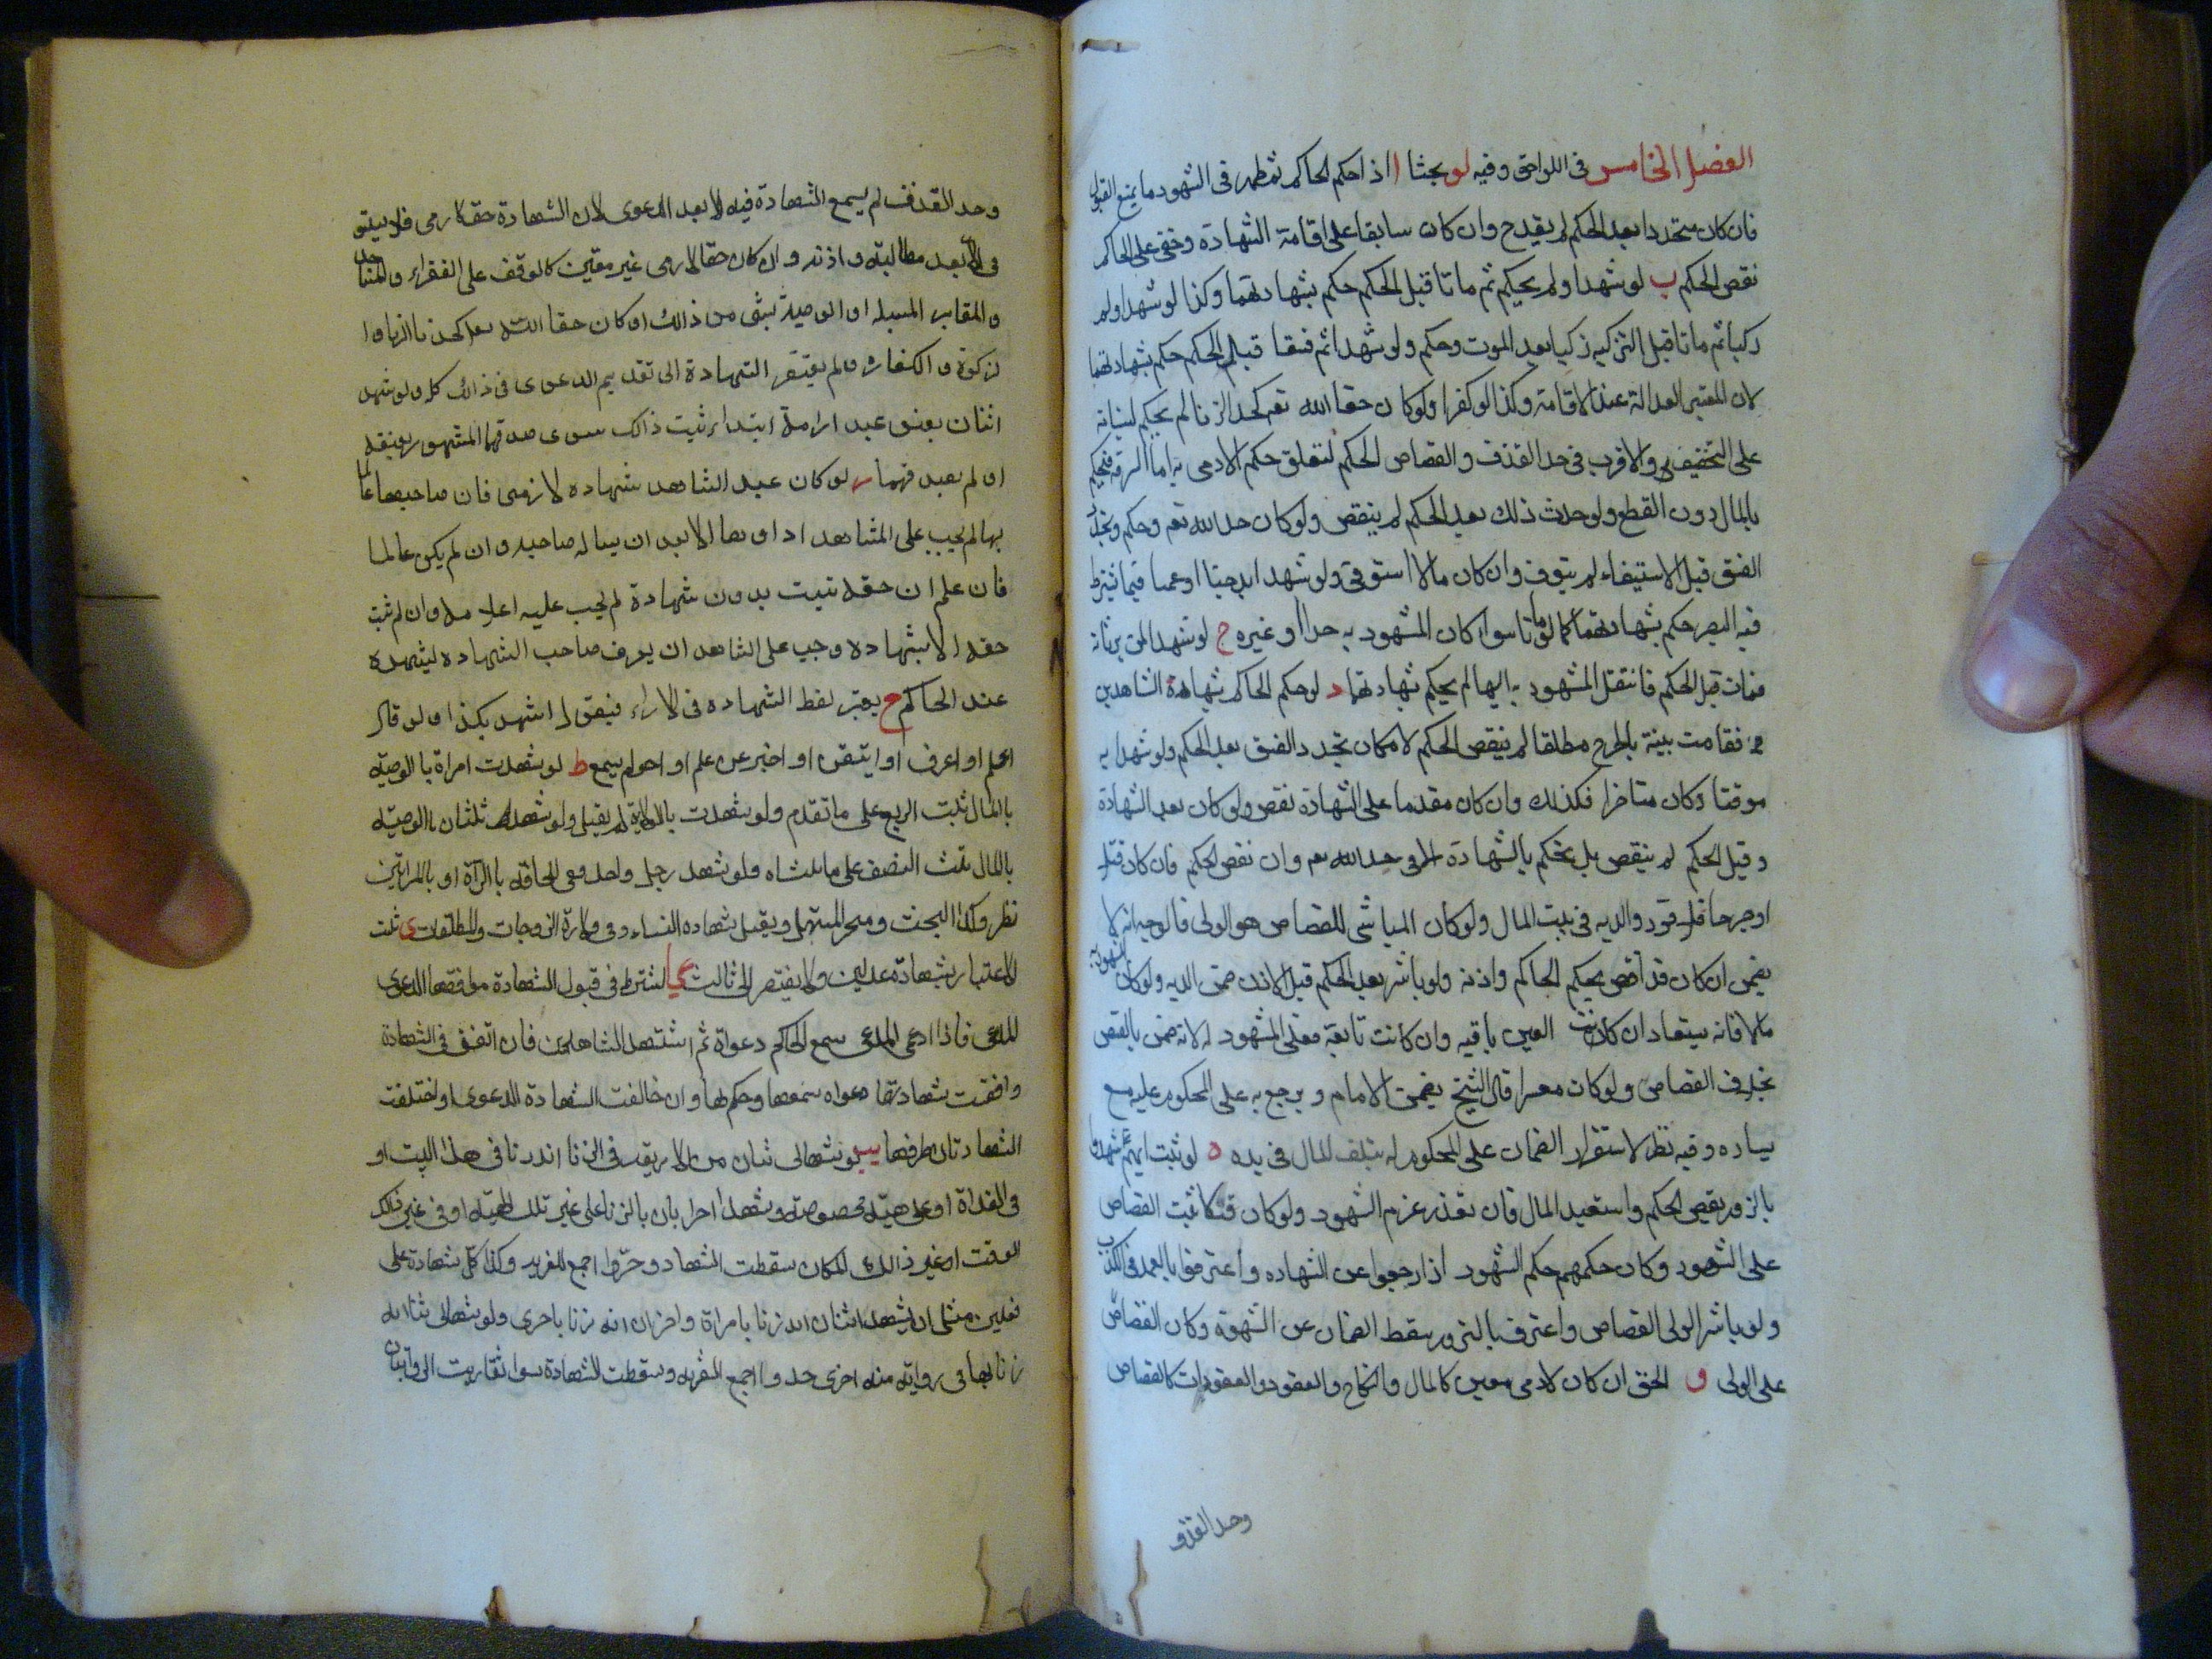 الفصل الخامس فى اللواحق وفيه لو بحثا ا اذا حكم الحاكم ثم ظهر فى الشهود ما يمنع القبول
فان كان متجددا بعد الحكم لم يقدح وان كان سابقا على اقامة الشهادة وخفى على الحاكم
نقض الحكم ب لو شهدا ولم يحكم ثم ماتا قبل الحكم حكم بشهادتهما وكذا لو شهدا ولم
زكيا ثم ماتا قبل التزكيه زكيا بعد الموت وحكم ولو شهدا ثم فسقا قبل الحكم حكم بشهادتهما
لان المعتبر العدالة عند الاقامة وكذا لو كفرا ولو كان حقا لله تعم كحد الزنا لم يحكم لبنائه
على التخفيف والاقرب فى حد القذف والقصاص الحكم لتعلق حكم الادمى به اما السرقه فيحكم
بالمال دون القطع ولو حدث ذلك بعد الحكم لم ينقض ولو كان حد الله تعم وحكم وتجدد
الفسق قبل الاستيفاء لم يتوف وان كان مالا استوفى ولو شهدا ثم جنا او عميا فيما يشترط
فيه البصر حكم بشهادتهما كما لو ماتا سوا كان المشهود به حدا او غيره ج لو شهدا لمن يرثانه
فمات قبل الحكم فانتقل المشهود به اليهما لم يحكم بشهادتهما د لو حكم الحاكم بشهادة الشاهدين
فقامت بينة بالجرح مطلقا لم ينقض الحكم لامكان تجدد الفسق بعد الحكم ولو شهدا به
موقتا وكان متاخرا فكذلك وان كان مقدما على الشهادة نقض ولو كان بعد الشهادة
وقبل الحكم لم ينقض بل يحكم بالشهادة الا فى حد الله تعم وان نقض الحكم فان كان قتلا
او جرحا فلا قود والديه فى بيت المال ولو كان المباشر للقصاص هو الولى فالوجه انه لا
يضمن ان كان قد اقتص بحكم الحاكم واذنه ولو باشر بعد الحكم قبل الاذن ضمن الديه ولو كان المشهود به
مالا فانه يستعاد ان كانت العين باقيه وان كانت تالفة فعلى المشهود له لانه ضمن بالقبض
بخلاف القصاص ولو كان معسرا قال الشيخ يضمن الامام ويرجع به على المحكوم عليه مع
يساره وفيه نظر لاستقرار الضمان على المحكوم له بتلف المال فى يده ه لو ثبت انهم شهدوا
بالزور نقض الحكم واستعيد المال فان تعذر غرم الشهود ولو كان قتلا ثبت القصاص
على الشهود وكان حكمهم حكم الشهود اذا رجعوا عن الشهاده واعترفوا بالعمد فى الكذب
ولو باشر الولى القصاص واعترف بالتزوير سقط الضمان عن الشهود وكان القصاص
على الولى و الحق ان كان لادمى معين كالمال والنكاح والعقود والعقوبات كالقصاص
وحد القذف
وحد القذف لم يسمع الشهادة فيه الا بعد الدعوى لان الشهادة حق لادمى فلا يستوفى
فى الا بعد مطالبته واذنه وان كان حقا لادمى غير معين كالوقف على الفقراء والمساجد
والمقابر المسبله او الوصية بشئ من ذالك او كان حقا لله تعم كحد الزنا او ا
لزكوة والكفاره ولم يفتقر الشهادة الى تقديم الدعوى فى ذالك كله ولو شهد
اثنان بعتق عبد او امة ابتداء ثبت ذالك سوى صدقهما المشهود بعتقه
او لم يصدقهما ز لو كان عبد الشاهد شهاده لا دمى فان صاحبها عالما
بها لم يجب على المشاهد اداوها الا بعد ان يساله صاحبه وان لم يكن عالما
فان علم ان حقه يثبت بدون شهادة لم يجب عليه اعلامه وان لم يثبت
حقه الا بشهاده وجب على الشاهد ان يعرف صاحب الشهاده ليشهده
عند الحاكم ح يعتبر لفظ الشهاده فى الاداء فيقول اشهد بكذا ولو قال
اعلم او اعرف او اتيقن او اخبر عن علم او احق لم يسمع ط لو شهدت امراة بالوصيه
بالمال ثبت الربع على ما تقدم ولو شهدت بالولاية لم يقبل ولو شهدت ثلثان بالوصيه
بالمال ثلث النصف على ما بيناه ولو شهد رجل واحد ففى الحاقه بالمراة او بالمراتين
نظر وكذا البحث وميراث المستهل ويقبل بشهاده النساء وفى ولادة الزوجات والمطلقات ى ثلث
الاعتبار بشهادة عدلين ولا يفتقر الى ثالث يا يشترط فى قبول الشهادة موافقتها لدعوى
المدعى فاذا ادعى المدعى سمع الحاكم دعواه ثم استشهد الشاهدين فان اتفق فى الشهادة
وافقت شهادتهما دعواه سمعها وحكم لها وان خالفت الشهادة الدعوى او اختلفت
الشهادتان طرفها يب لو شهد اثنان من الاربعة فى الزنا انه زنا فى هذا البيت او
فى الغداة او على هيئة مخصوصة وشهد اخران بالزنا على غير تلك الهيئه او فى غير ذلك
الوقت او غير ذالك المكان سقطت الشهاده وحدوا اجمع للفرية وكذا كل شهادة على
فعلين مثل ان يشهد اثنان انه زنا بامراة واخران انه زنا باخرى ولو شهد اثنان انه
زنا بها فى زاويه منه اخرى حدوا اجمع للفريه وسقطت الشهادة سوا تقاربت الزاويتان